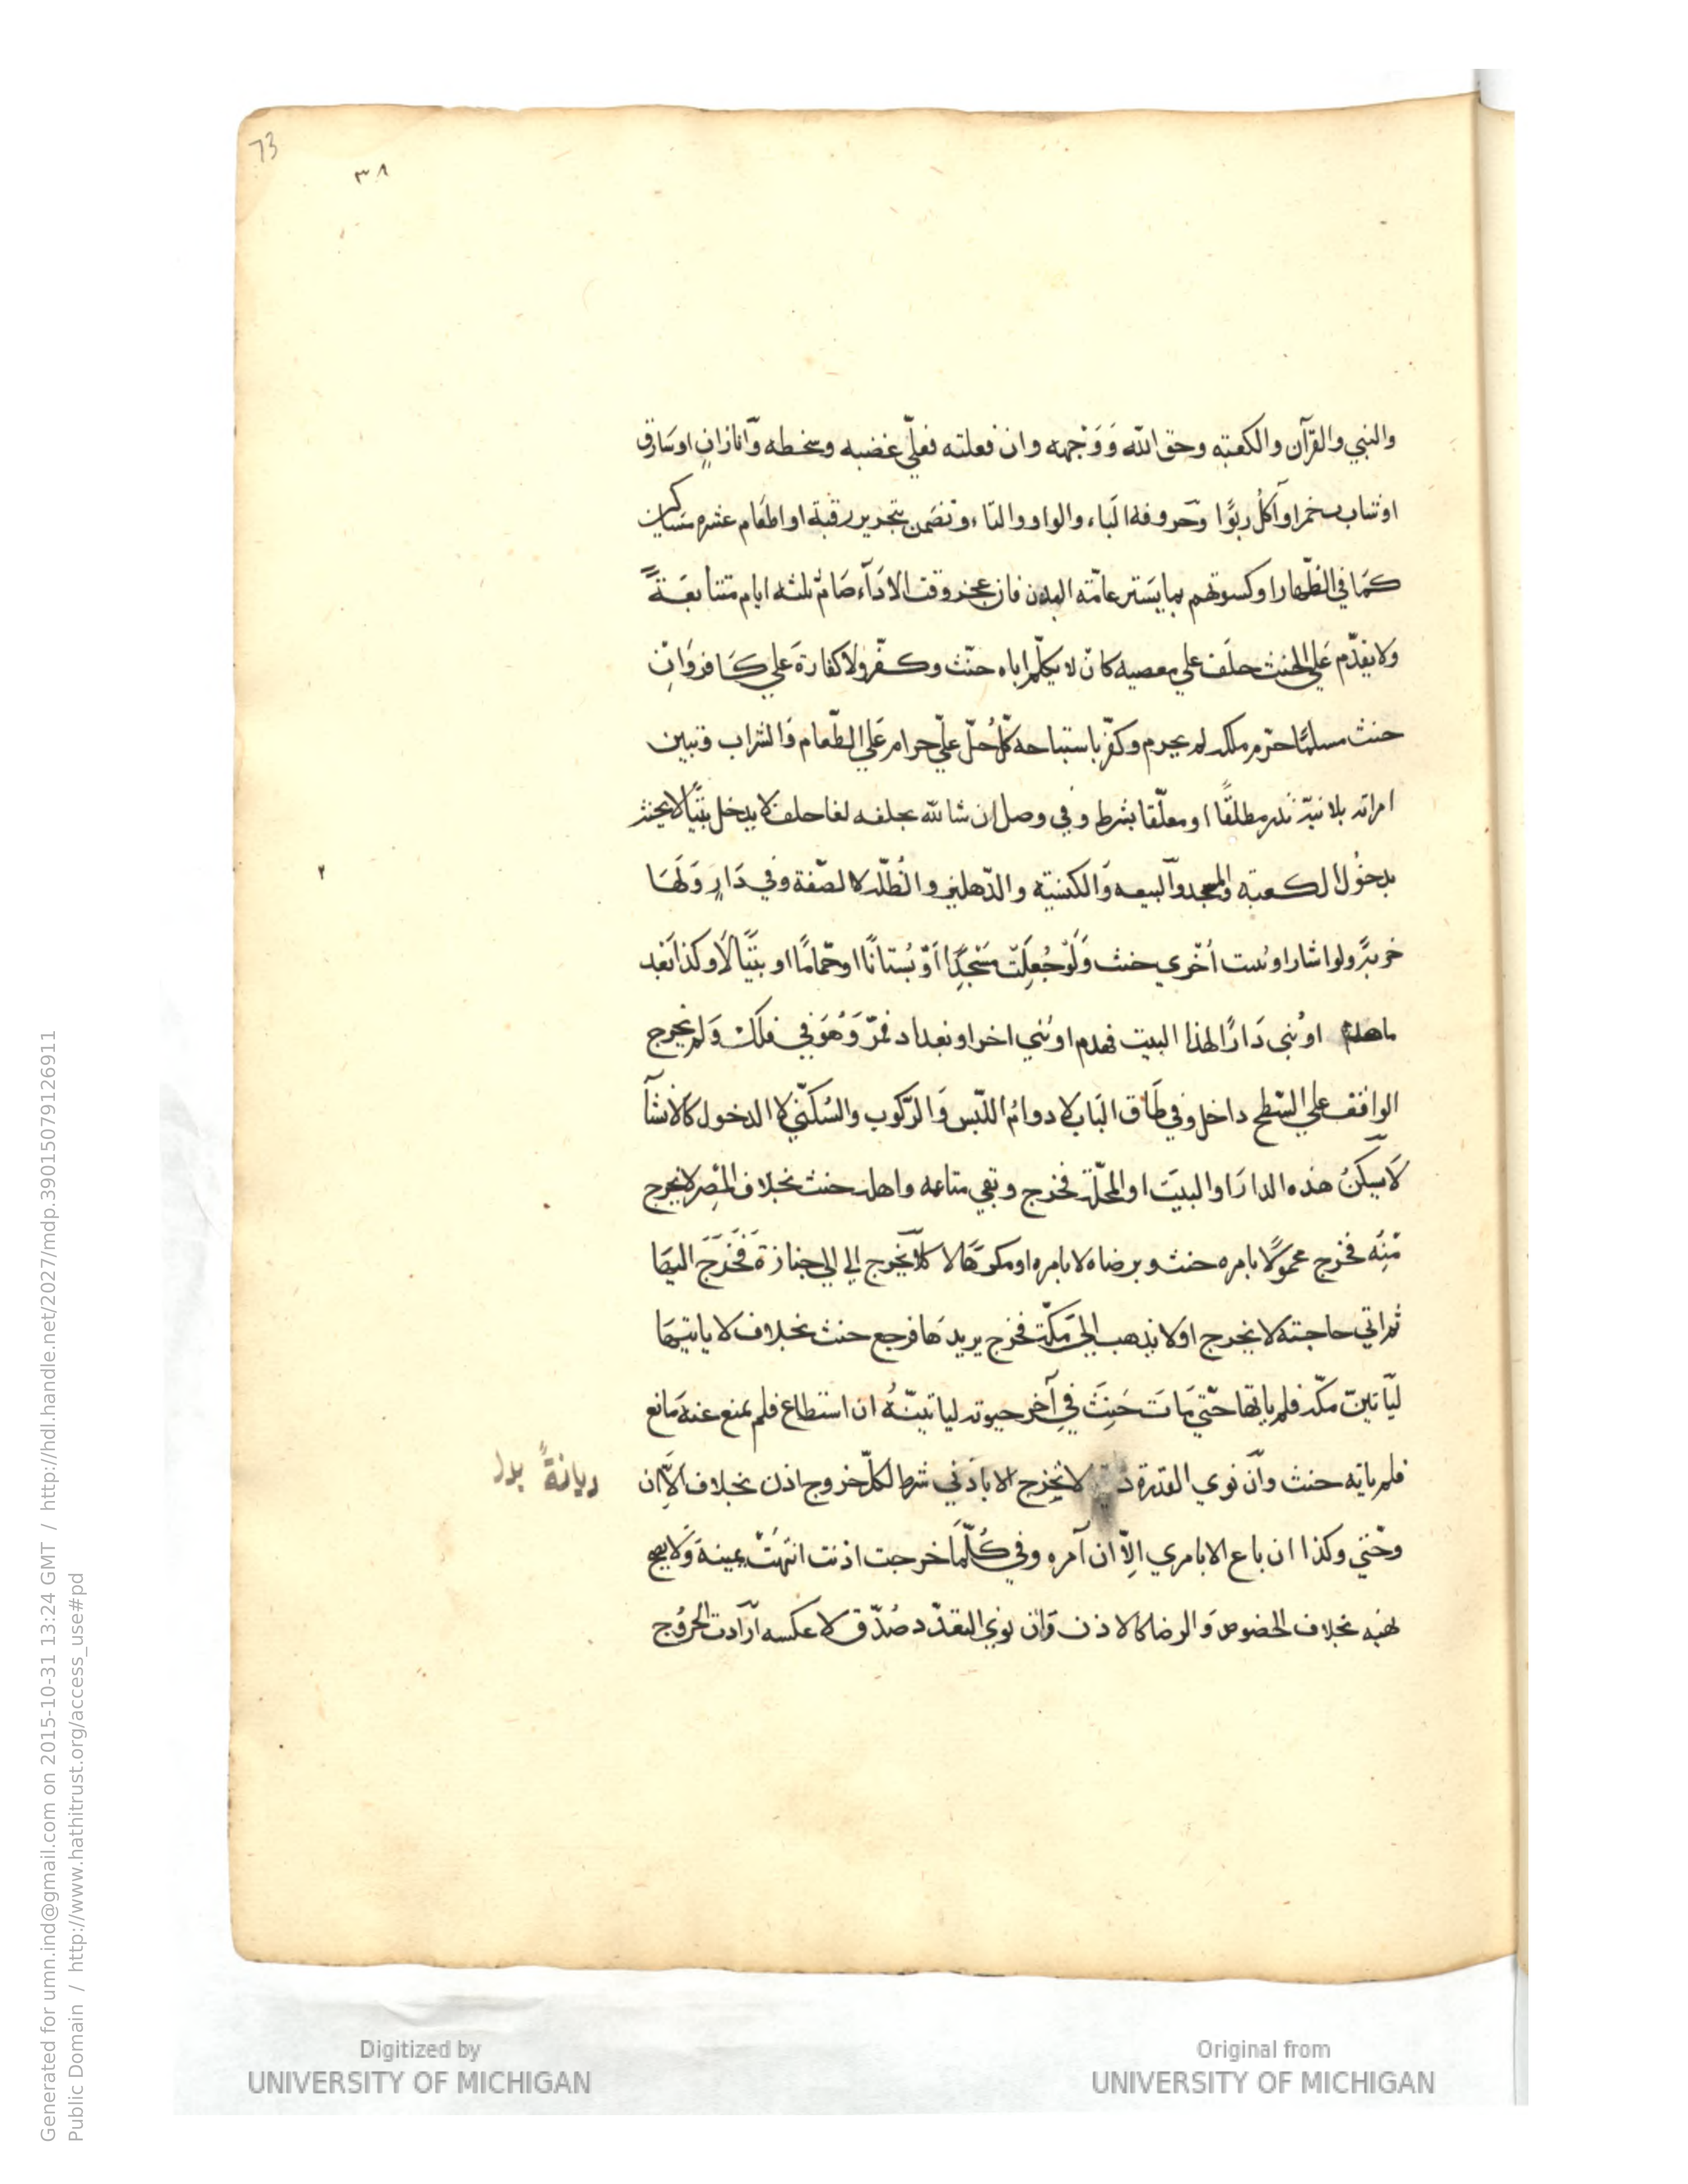 73
٣٨
والنبي والقرآن والكعبته وحق الله وَوَجْهه وان فعلته فعليّ غضبه وسخطه وَّانا زانٍ اوسَارق
اوشاب خمرا وآكلُ ربوًا وَّحروفه الباء والواو والتاء وتضمن بتحرير رقبة او اطعَام عشره مساكين
كمَا في الظّهار اوكسوتهم بما يَستر عامّته البدن فان عجز وقت الادَآء صَامٌ ثلثه ايام متتابعَةً
وَلا يقدّم عَلي الحنث حلَف علي معصيه كان لا يكلّم اباه حنّث وكفّر ولا كفارة علي كَافر وَانِ
حنث مسلمًا حرّم ملكه لم يحرم وكفّر باستباحه كلُّ حُلّ عليّ حرام عَلي الطّعام وَالشراب وتبين
امراته بلا نيّة نذر مطلقًا اومعلّقا بشرط وفي وصل ان شا لله بحلفه لغا حلف لا يدخل بيْتًا لا يحنث
بدخُول الكعبته والمسجد وآلبيعه وَالكنيته والدّهليز والظّله لا الصّفة وفي دَارٍ وَلَهَا
خربةً ولو اشارا وبنيت اُخْري حنث وَلَوْ جُعِلَتْ مَسْجِدًا اَوْ بُستَانًا اوحّمامًا او بيتًا لَا وكذا بعد
ماهدم اوبُني دَارًا لهذا البيت فهدم اوبُني اخر او بغداد فمرّ وَهُوَ في فلك وَلم يخرج
الواقف علي السّطح داخل وفي طَاق البَاب لا دوامُ اللّبس وَالرّكوب والسُكنّي لا الدخول كالانشآ
لَا يَسكنُ هذه الدارَ او البيتَ او المحلّة فخرج وبقي متاعه واهله حنث بخلاف المِصر لا يخرج
مّنِه فخرج محموًلا بامره حنث وبرضاه لا بامره اومكرَهًا لا كلَا يَخْرج الي الي جنازة فَخَرَجَ اليهَا
ثم اتي حاجته لا يخرج اولا يذهب الي مَكّت فخرج يريدهَا فرجع حنث بخلاف لا ياتيهَا
ليَاتينّ مكّه فلم ياتها حتّي مَاتَ حَنِثَ في آخر حيوته لياتينّهُ ان استطاع فلم يمنع عنه مَانع
فلم ياته حنث وآن نوي القدرة د لا تخرج الا باذني شرط لكلّ خروج اذن بخلاف الّا ان
ديانةً بدل
وحّتي وكذا ان باع الا بامري الِّا ان آمره وفي كُلّمَا خرجت اذنت انتهَتْ يمينه وَلا يصح
نهيه بخلاف الخضوص وَالرضا كالاذن وَانْ نوي التعدّد صُدّق لا عكسه آرَادت الخرُوج
٢
Digitized by
UNIVERSITY OF MICHIGAN
Original from
UNIVERSITY OF MICHIGAN
Generated for umn.ind@gmail.com on 2015-10-31 13:24 GMT / http://hdl.handle.net/2027/mdp.39015079126911
Public Domain / http://www.hathitrust.org/access_use#pd